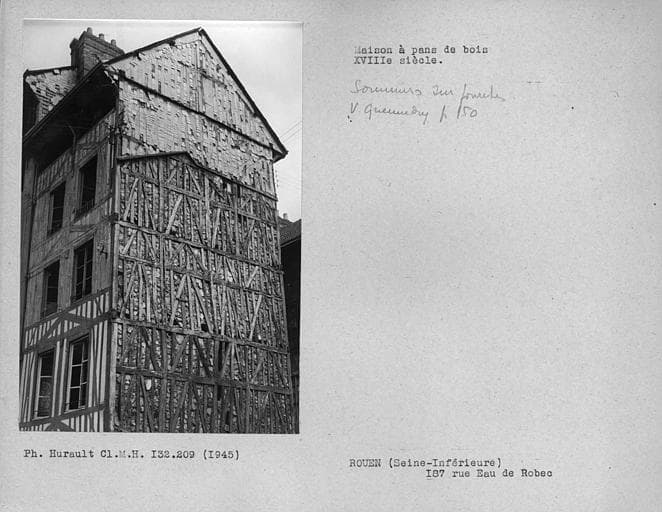 Maison à pans de bois
XVIIIe siècle.
Sommiers sur
V. Quenedey p 150
Ph. Hurault Cl.M.H. I32.209 (I945)
ROUEN (Seine-Inférieure)
I87 rue Eau de Robec